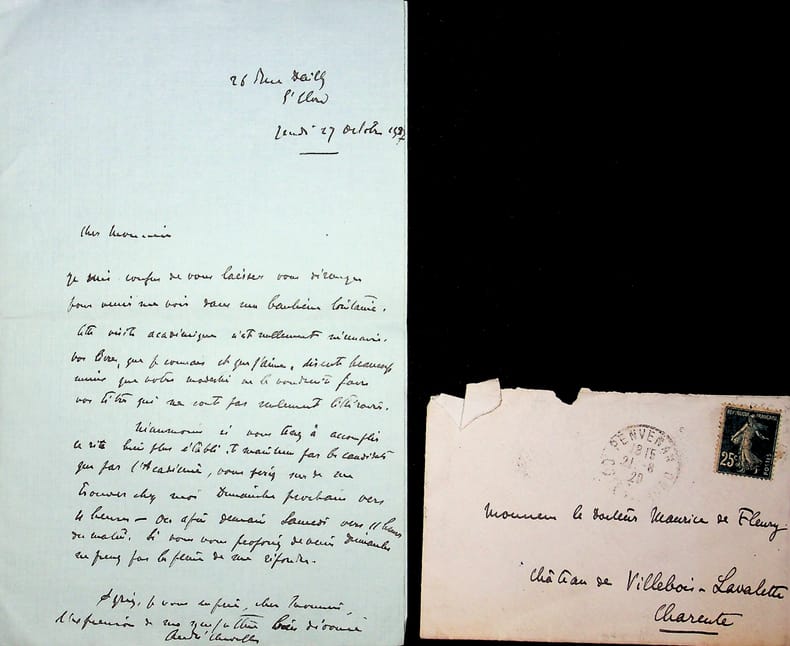 26 Rue Dailly
St Cloud
Jeudi 27 Octobre 1927
Cher Monsieur
Je suis confus de vous laisser vous déranger
pour venir me voir dans ma banlieue lointaine.
Cette visite académique n'est nullement nécessaire.
Vos livres, que je connais et que j'aime, disent beaucoup
mieux que votre modestie ne le voudrait faire
vos titres qui ne sont pas seulement littéraires.
Néanmoins si vous tenez à accomplir
ce rite bien plus établi et maintenu par les candidats
que par l'Académie, vous serez sûr de me
trouver chez moi Dimanche prochain vers
4 heures - ou après demain Samedi vers 11 heures
du matin. Si vous préférez venir Dimanche
ne prenez pas la peine de me répondre.
Agréez, je vous en prie, cher Monsieur,
l'expression de ma sympathie bien dévouée
André Chevrillon
PENVENAN
18 15
21-8
29
REPUBLIQUE FRANÇAISE
25c
POSTES
Monsieur le docteur Maurice de Fleury
Château de Villebois-Lavalette
Charente